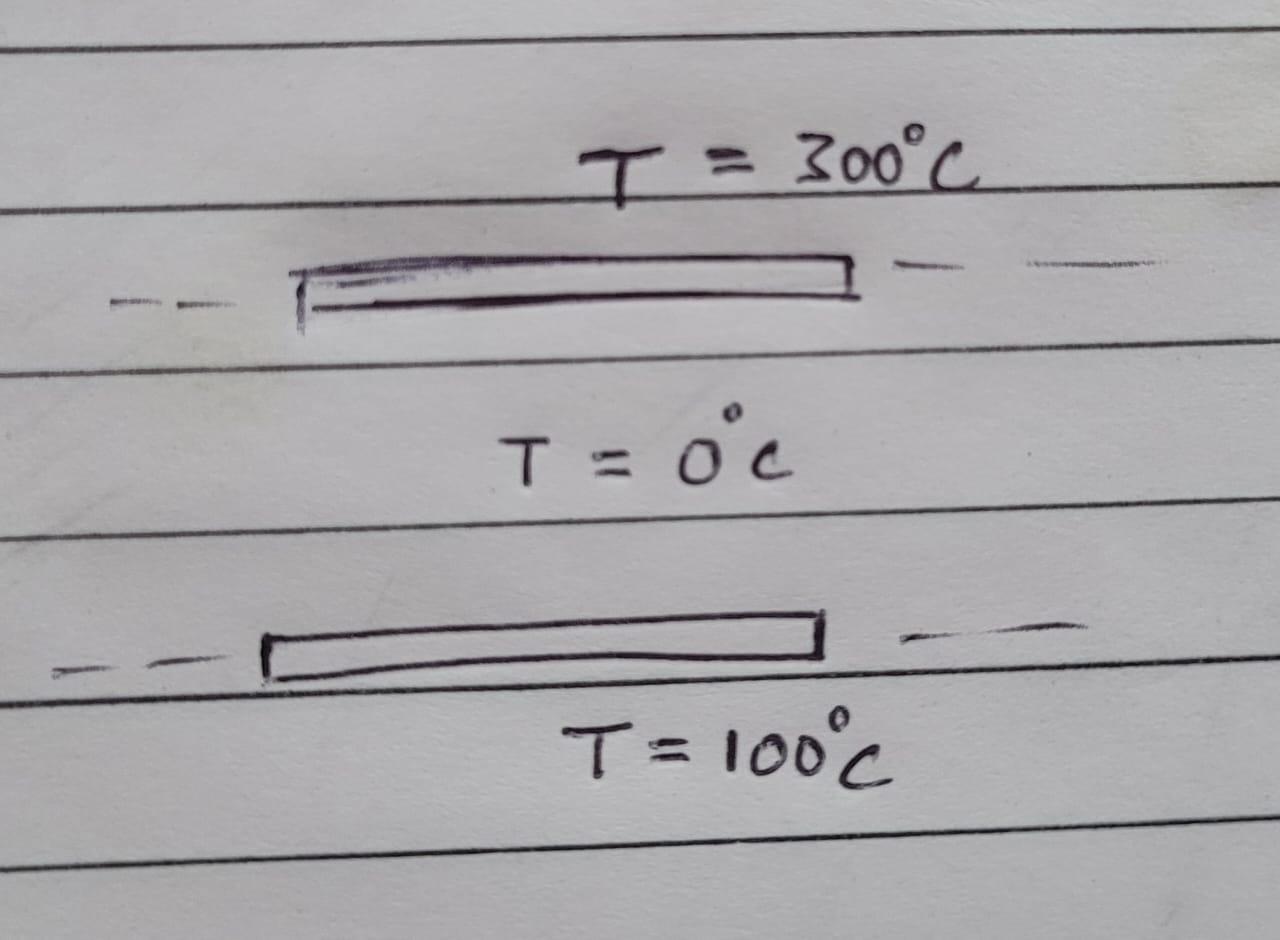 T = 300°C
T = 0°C
T = 100°C